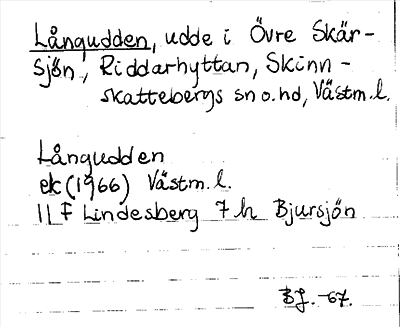 Långudden, udde i Övre Skär-
sjön, Riddarhyttan, Skinn-
skattebergs sn o. hd, Västm.l.
Långudden
ek (1966) Västm.l.
11 F Lindesberg 7 h Bjursjön
BJ. -67.